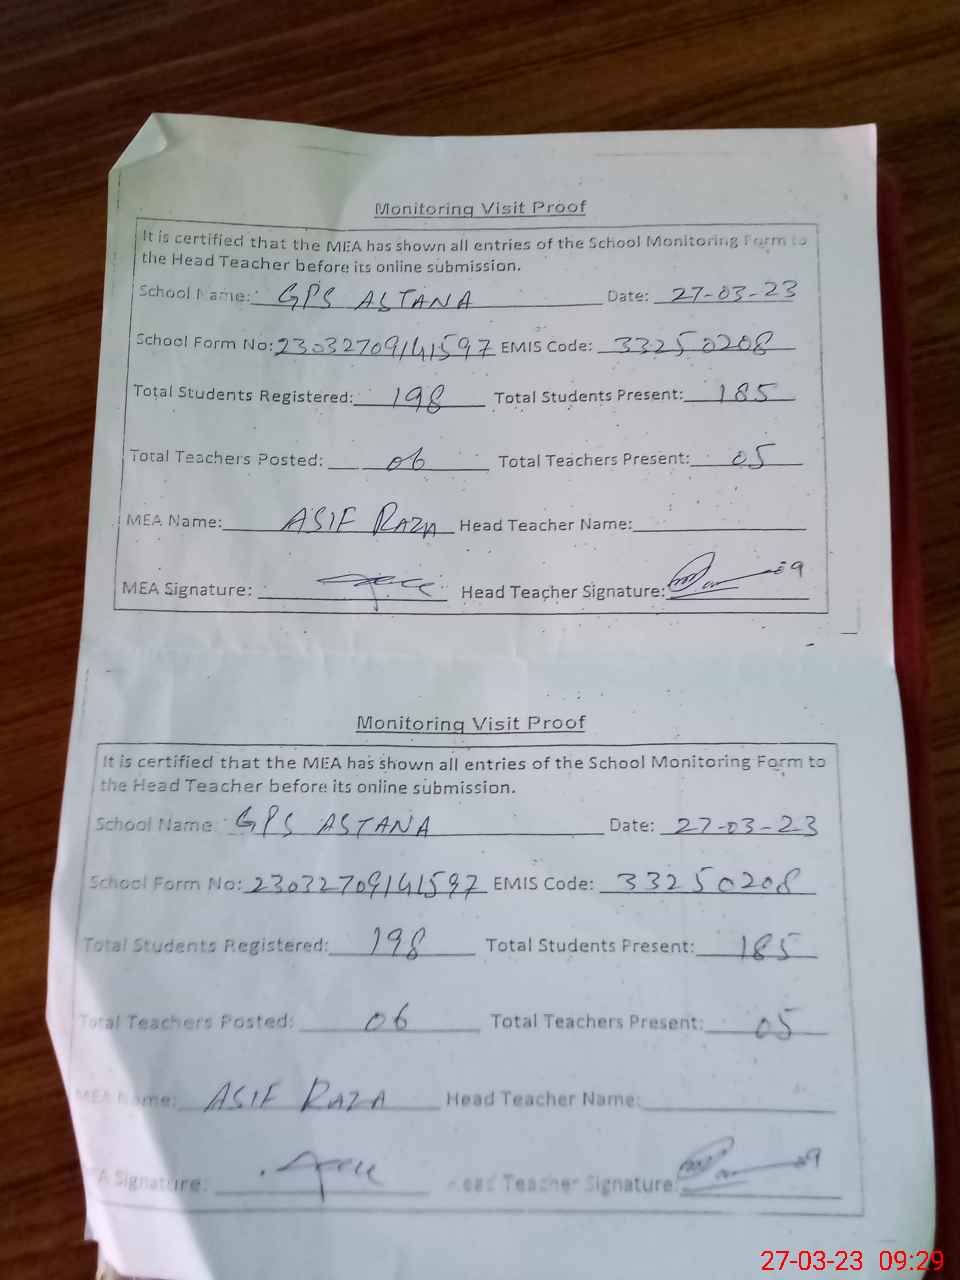 Monitoring Visit Proof
It is certified that the MEA has shown all entries of the School Monitoring Form to
the Head Teacher before its online submission.
School Name: GPS ASTANA Date: 27-03-23
School Form No: 23032709141597 EMIS Code: 33250208
Total Students Registered: 198 Total Students Present: 185
Total Teachers Posted: 06 Total Teachers Present: 05
MEA Name: ASIF RAZA Head Teacher Name:
MEA Signature: Head Teacher Signature:
Monitoring Visit Proof
It is certified that the MEA has shown all entries of the School Monitoring Form to
the Head Teacher before its online submission.
School Name: GPS ASTANA Date: 27-03-23
School Form No: 23032709141597 EMIS Code: 33250208
Total Students Registered: 198 Total Students Present: 185
Total Teachers Posted: 06 Total Teachers Present: 05
MEA Name: ASIF RAZA Head Teacher Name:
EA Signature: Head Teacher Signature:
27-03-23 09:29